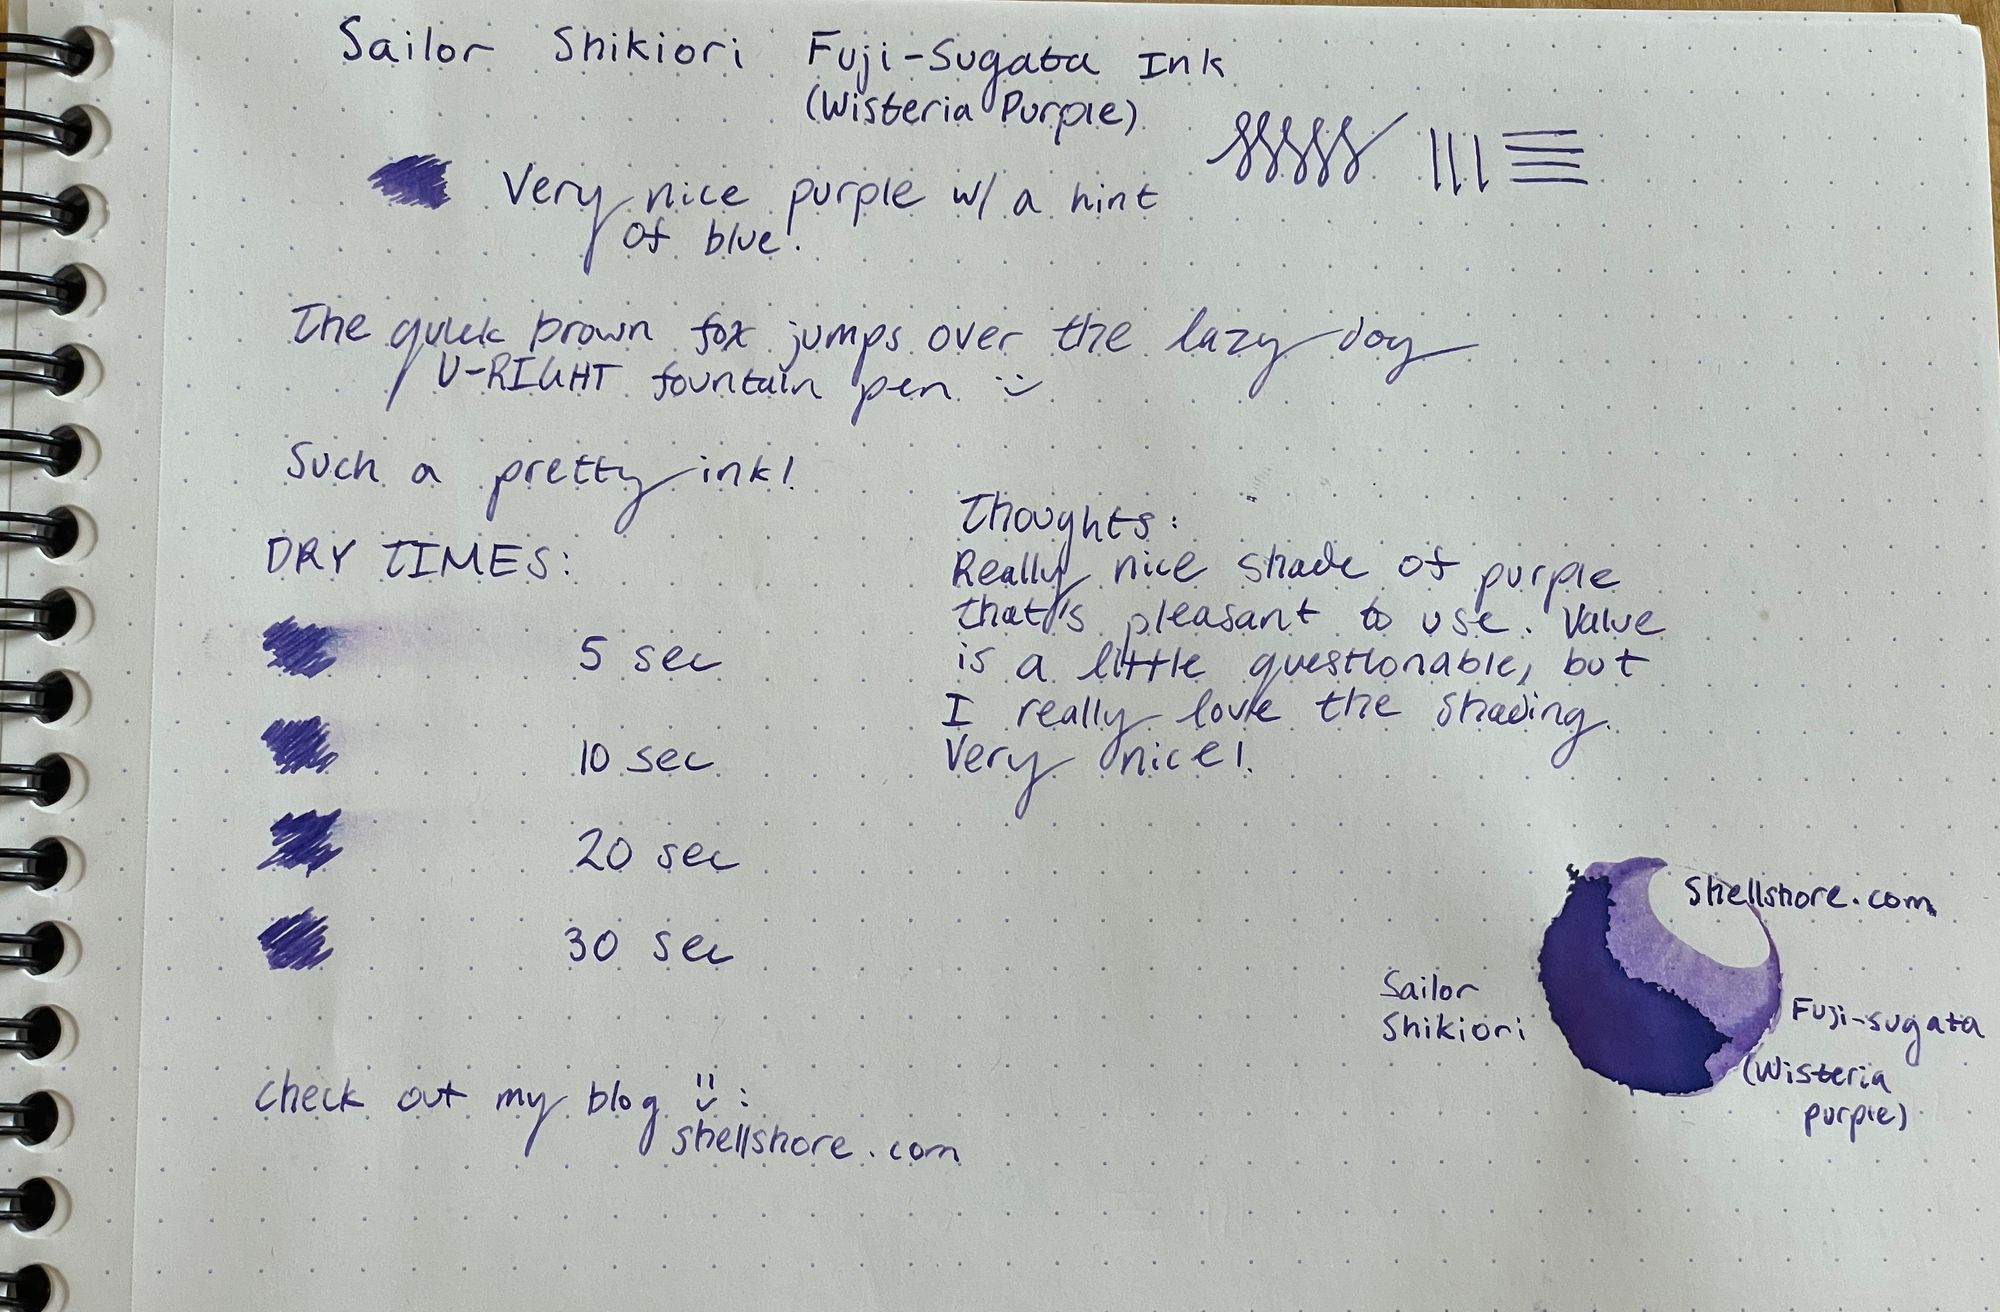 Sailor Shikiori Fuji-Sugata Ink
(Wisteria Purple)
Very nice purple w/ a hint
of blue!
The quick brown fox jumps over the lazy dog
U-RIGHT fountain pen :)
Such a pretty ink!
DRY TIMES:
5 sec
10 sec
20 sec
30 sec
Thoughts:
Really nice shade of purple
that's pleasant to use. Value
is a little questionable, but
I really love the shading.
Very nice!
shellshore.com
Sailor
Shikiori
Fuji-sugata
(Wisteria
purple)
check out my blog :) :
shellshore.com